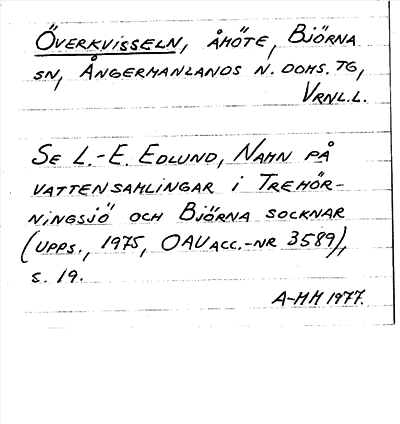 ÖVERKVISSELN, ÅMÖTE, BJÖRNA
SN, ÅNGERMANLANDS N. DOMS. TG,
VRNL.L.
SE L.-E. EDLUND, NAMN PÅ
VATTENSAMLINGAR I TREHÖR-
NINGSJÖ OCH BJÖRNA SOCKNAR
(UPPS., 1975, OAU ACC.-NR 3589),
S. 19.
A-MH 1977.